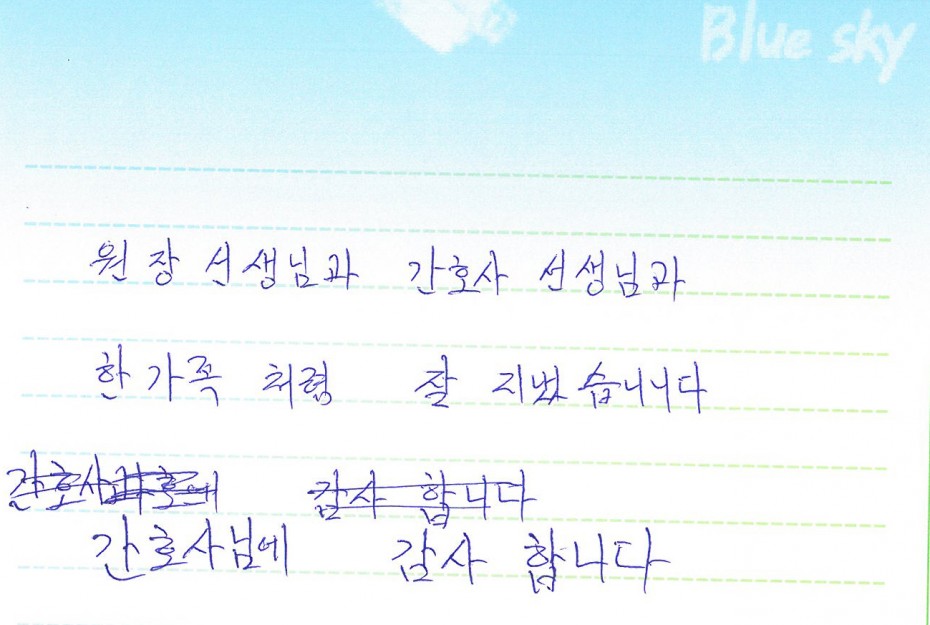 Blue sky
원장 선생님과 간호사 선생님과
한가족 처렴 잘 지냈습니니다
감사 합니다
간호사님에 감사 합니다